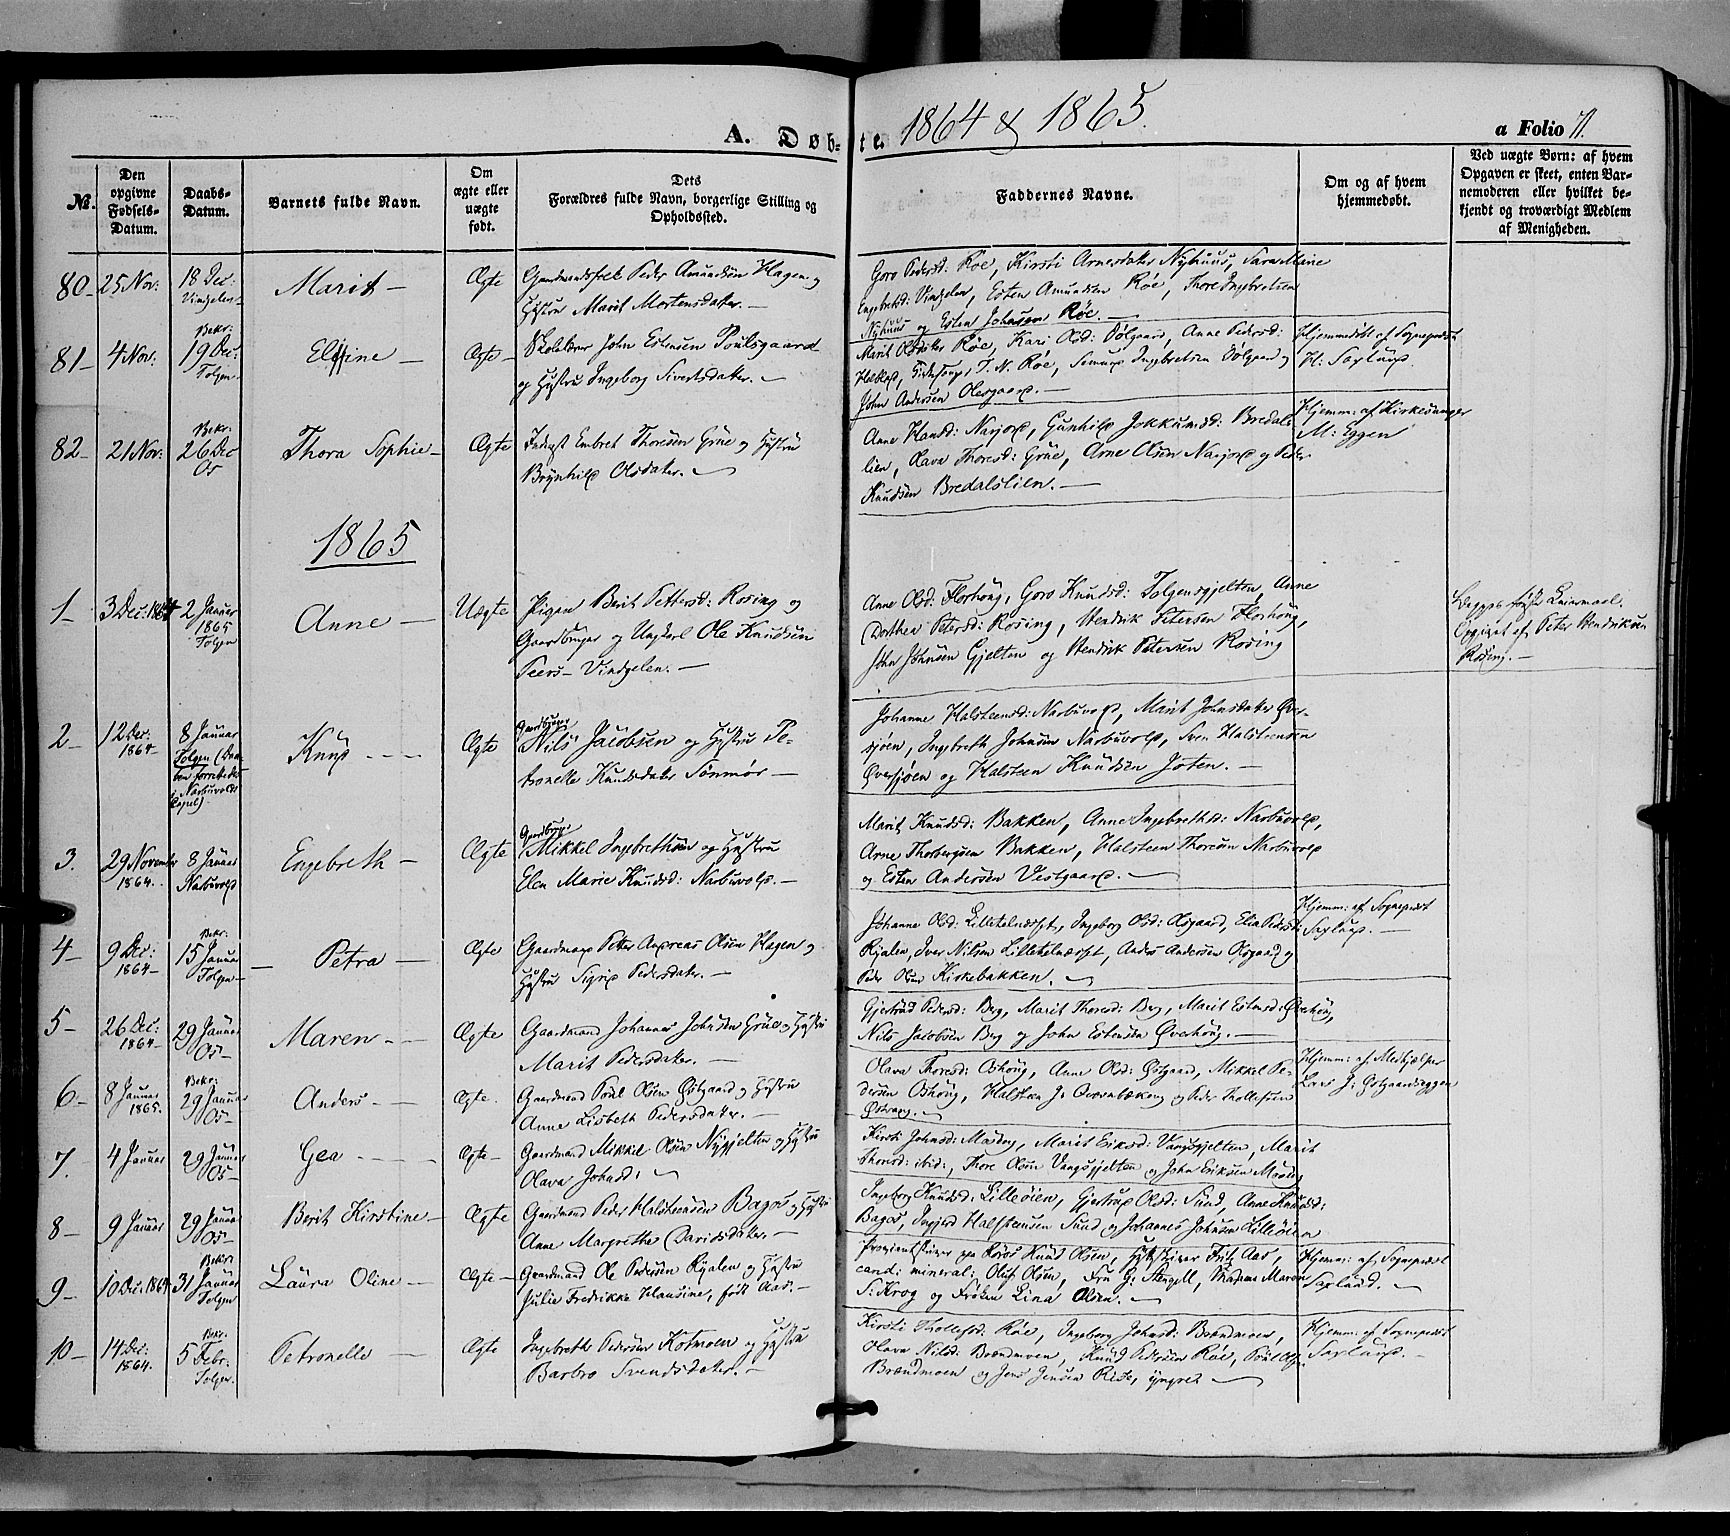 A. Døb-te. 1864 & 1865.
a Folio 71.
№.
Den
opgivne
Fødsels-
Datum.
Daabs-
Datum.
Barnets fulde Navn.
Om
ægte eller
uægte
født.
Dets
Forældres fulde Navn, borgerlige Stilling og
Opholdssted.
Faddernes Navne.
Om og af hvem
hjemmedøbt.
Ved uægte Børn: af hvem
Opgaven er skeet, enten Bar-
nemoderen eller hvilket be-
kjendt og troværdigt Medlem
af Menigheden.
80- 25 Nov:
18 Dec:
Vingelen-
Marit -
Ægte
Gaardmandsfolk Peder Amundsen Hagen og
Hustru Marit Mortensdater. -
Goro Pedersd: Røe, Kirsti Arnesdater Nyhuus, Sara Marie
Engebretsd: Vingelen, Esten Amundsen Røe, Thore Ingebretsen
Nyhuus og Esten Johnsen Røe. -
81- 4 Nov.
Bekr:
19 Dec.
Tolgen
Eline -
Ægte-
Skolelærer John Estensen Poulsgaard
og Hustru Ingeborg Sivertsdater. -
Marit Olsdater Røe, Kari Olsd: Dølgaard, Anne Pedersd:
J. N. Røe, Simen Ingebretsen Dølgaard og
John Andersen Olesgaard. -
Hjemmedøbt af Sognepræst
H: Saxlund.
82- 21 Nov:
Bekr:
26 Dec
Os
Thora Sophie-
Ægte
Inderst Embret Thoresen Grue og Hustru
Brynhild Olsdater. -
Anne Hansd: Narjord, Gunhild Jokkumsd: Bredals
lien, Olava Thoresd: Grue, Arne Olsen Narjord og Peder
Knudsen Bredalslien. -
Hjemm: af Kirkesanger
M: Eggen
1865
1- 3 Dec: 1864
2 Januar
1865
Tolgen
Anne -
Uægte
Pigen Berit Pettersd: Rosing og
Gaardbruger og Ungkarl Ole Knudsen
Peers- Vingelen. -
Anne Olsd: Florhoug, Goro Knudsd: Tolgensgjelten, Anne
Dorthea Petersd: Rosing, Hendrik Petersen Florhoug,
John Johnsen Gjelten og Hendrik Petersen Rosing
Begges første Leiermaal.
Opgivet af Peter Hendriksen
Rosing. -
2- 12 Dec:
1864-
8 Januar
Tolgen (Daa-
ben forrettedes
i Narbuvolds
Capel)
Knud - - -
Ægte
Gaardbruger
Nils Jacobsen og Hustru Pe-
tronelle Knudsdater Sønmør -
Johanne Halsteensd: Narbuvold, Marit Johnsdater Øver-
sjøen, Ingebreth Johnsen Narbuvold, Sven Halsteensen
Øversjøen og Halsteen Knudsen Joten. -
3. 29 November
1864.
8 Januar
Narbuvold
Engebreth -
Ægte
Gaardbrug:
Mikkel Ingebrethsen og Hustru
Elen Marie Knudsd: Narbuvold. -
Marit Knudsd: Bakken, Anne Ingebrethsd: Narbuvold,
Arne Thorbergsen Bakken, Halsteen Thoresen Narbuvold
og Esten Andersen Vestgaard. -
4- 9 Dec:
1864-
Bekr:
15 Januar
Tolgen-
- Petra -
Ægte
Gaardmand Peter Andreas Olsen Hagen og
Hustru Sigrid Pedersdater. -
Johanne Olsd: Lilletelneset, Ingeborg Olsd: Olsgaard, Elia Pedersd:
Kjalen, Iver Nilsen Lilletelneset, Anders Andersen Olsgaard og
Peder Olsen Kirkebakken. -
Hjemm: af Sognepræst
Saxlund. -
5- 26 Dec:
1864-
29 Januar
Os-
Maren - -
Ægte
Gaardmand Johannes Johnsen Grue og Hustru
Marit Pedersdater. -
Gjertrud Pedersd: Berg, Marit Thoresd: Berg, Marit Estensd: Øverhoug,
Nils Jacobsen Berg og John Estensen Øverhoug. -
6- 8 Januar
1865.
Bekr:
29 Januar
Os-
Anders - -
Ægte.
Gaardmand Poul Olsen Østgaard og Hustru
Anne Lisbeth Pedersdater. -
Olava Thoresd: Oshoug, Anne Olsd: Østgaard, Mikkel Pe-
dersen Oshoug, Halsteen J. og Peder Thollefsen
Østvang. -
Hjemm: af Medhjælper
Lars J: Østgaardseggen
7. 4 Januar
29 Januar
Os-
Gea - - -
Ægte-
Gaardmand Mikkel Olsen Nygjelten og Hustru
Olava Johnsd: -
Kirsti Johnsd: Moseng, Marit Eriksd: Vangsgjelten, Marit
Thoresd: ibid:, Thore Olsen Vangsgjelten og John Eriksen Moseng
8- 9 Januar
29 Januar
Os-
Berit Kirstine-
Ægte
Gaardmand Peder Halsteensen Bagos og Hustru
Anne Margrethe Davidsdater. -
Ingeborg Knudsd: Lilleøien, Gjertrud Olsd: Sund, Anne Knudsd:
Bagos, Ingjerd Halsteensen Sund og Johannes Johnsen Lilleøien
9- 10 Dec. 1864
Bekr:
31 Januar
Tolgen
Laura Oline -
Ægte-
Gaardmand Ole Pedersen Kjalen og Hustru
Julie Fredrikke Hansine, født Aas. -
Proviantskriver paa Røros Knud Olsen, Hytteskriver Fritz Aas,
cand: mineral: Oluf Olsen, Fru J: Stengell, Madame Maren
S: Krog og Frøken Lina Olsen. -
Hjemm: af Sognepræst
Saxlund. -
10- 14 Dec:
1864.
Bekr:
5 Febr:
Tolgen.
Petronelle -
Ægte
Ingebreth Pedersen Kotmoen og Hustru
Barbro Svendsdater. -
Kirsti Thollefsd: Røe, Ingeborg Johnsd: Brændmoen,
Olava Nilsd: Brændmoen, Knud Pedersen Røe, Poul Olsen
Brændmoen og Jens Jensen Røse, yngre -
Hjemm: af Sognepræst
Saxlund. -